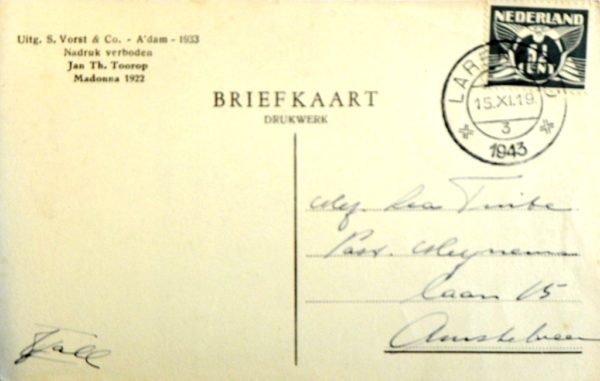 Uitg. S. Vorst & Co. - A'dam - 1933
Nadruk verboden
Jan Th. Toorop
Madonna 1922
BRIEFKAART
DRUKWERK
NEDERLAND
CENT
LAREN
15.XI.19
3
1943
Mej.
laan 15
Amstelveen